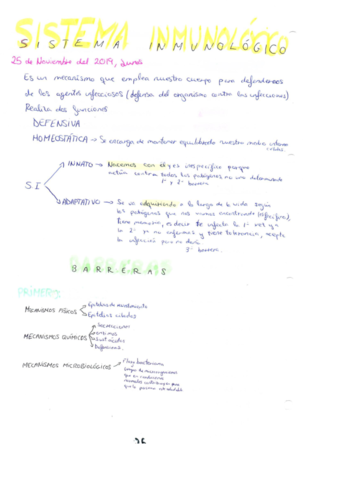 SISTEMA INMUNOLÓGICO
SISTEMA INMUNOLÓGICO
25 de Noviembre del 2019, Lunes
Es un mecanismo que emplea nuestro cuerpo para defendernos
de los agentes infecciosos (defensa del organismo contra las infecciones)
Realiza dos funciones
DEFENSIVA
HOMEOSTÁTICA → Se encarga de mantener equilibrado nuestro medio interno
S.I
INNATO → Nacemos con él y es inespecífico porque
actúa contra todos los patógenos no uno determinado
1ª y 2ª barrera
ADAPTATIVO → Se va adquiriendo a lo largo de la vida según
los patógenos que nos vamos encontrando (específico)
tiene memoria, es decir te infecta la 1ª vez y
la 2ª ya no
3ª barrera
BARRERAS
BARRERAS
PRIMERA
MECANISMOS FÍSICOS
Epitelios de revestimiento
Epitelios ciliados
MECANISMOS QUÍMICOS
Secreciones
MECANISMOS MICROBIOLÓGICOS
Flora bacteriana
que en condiciones